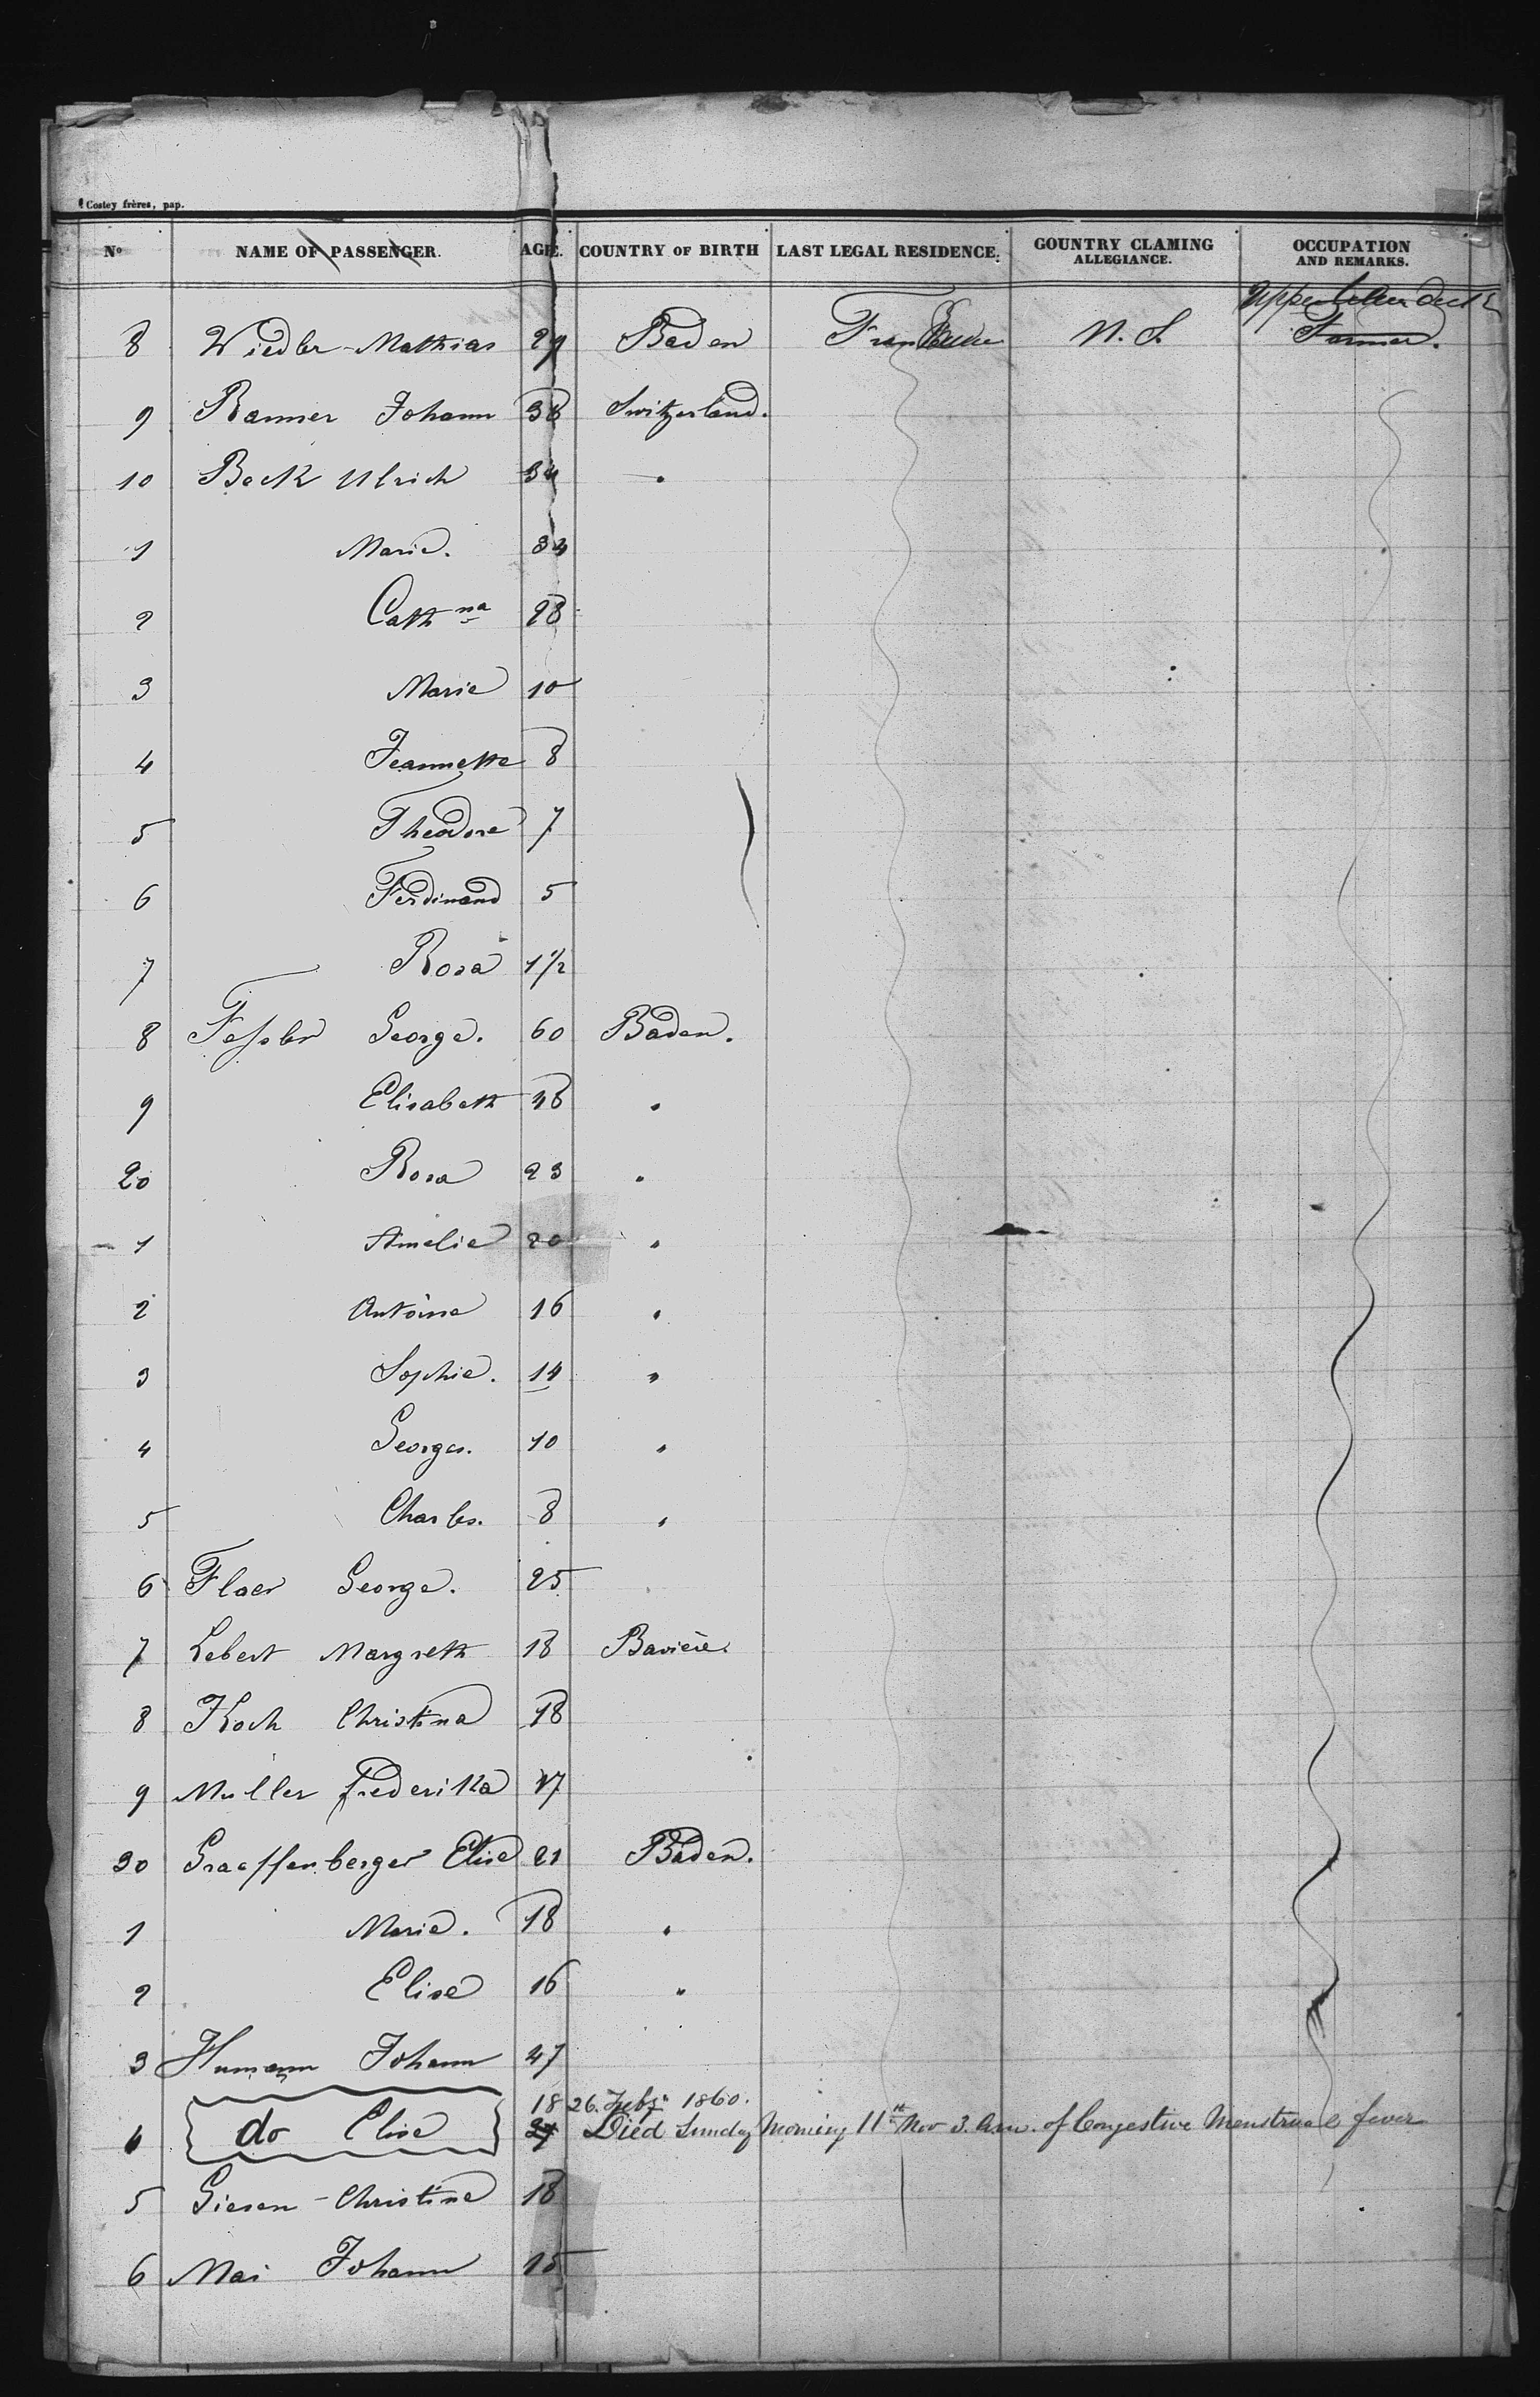 Costey frères, pap.
No NAME OF PASSENGER. AGE. COUNTRY OF BIRTH LAST LEGAL RESIDENCE. GOUNTRY CLAMING ALLEGIANCE. OCCUPATION AND REMARKS.
8 Wiedler Mathias 29 Baden Farmer.
9 Ranner Johann 38 Switzerland.
10 Beck Ulrich 34 "
1 Marie. 34
2 Cathna 28
3 Marie 10
4 Jeannette 8
5 Theodore 7
6 Ferdinand 5
7 Rosa 1 1/2
8 Fessler George. 60 Baden.
9 Elisabeth 48 "
20 Rosa 23 "
1 Amelie 20 "
2 Antoine 16 "
3 Sophie. 14 "
4 Georges. 10 "
5 Charles. 8 "
6 Flaer George. 25
7 Lebert Margreth 18 Baviere.
8 Koch Christina 18
9 Muller Frederika 17
30 Graeffenberger Elise 21 Baden.
1 Marie. 18 "
2 Elise 16 "
3 Humann Johann 47
18 26. Feby. 1860.
do Elise 27 Died Sunday Morning 11th Nov 3. A.m. of Congestive Menstrual fever
5 Giesen - Christine 18
6 Mai Johann 15